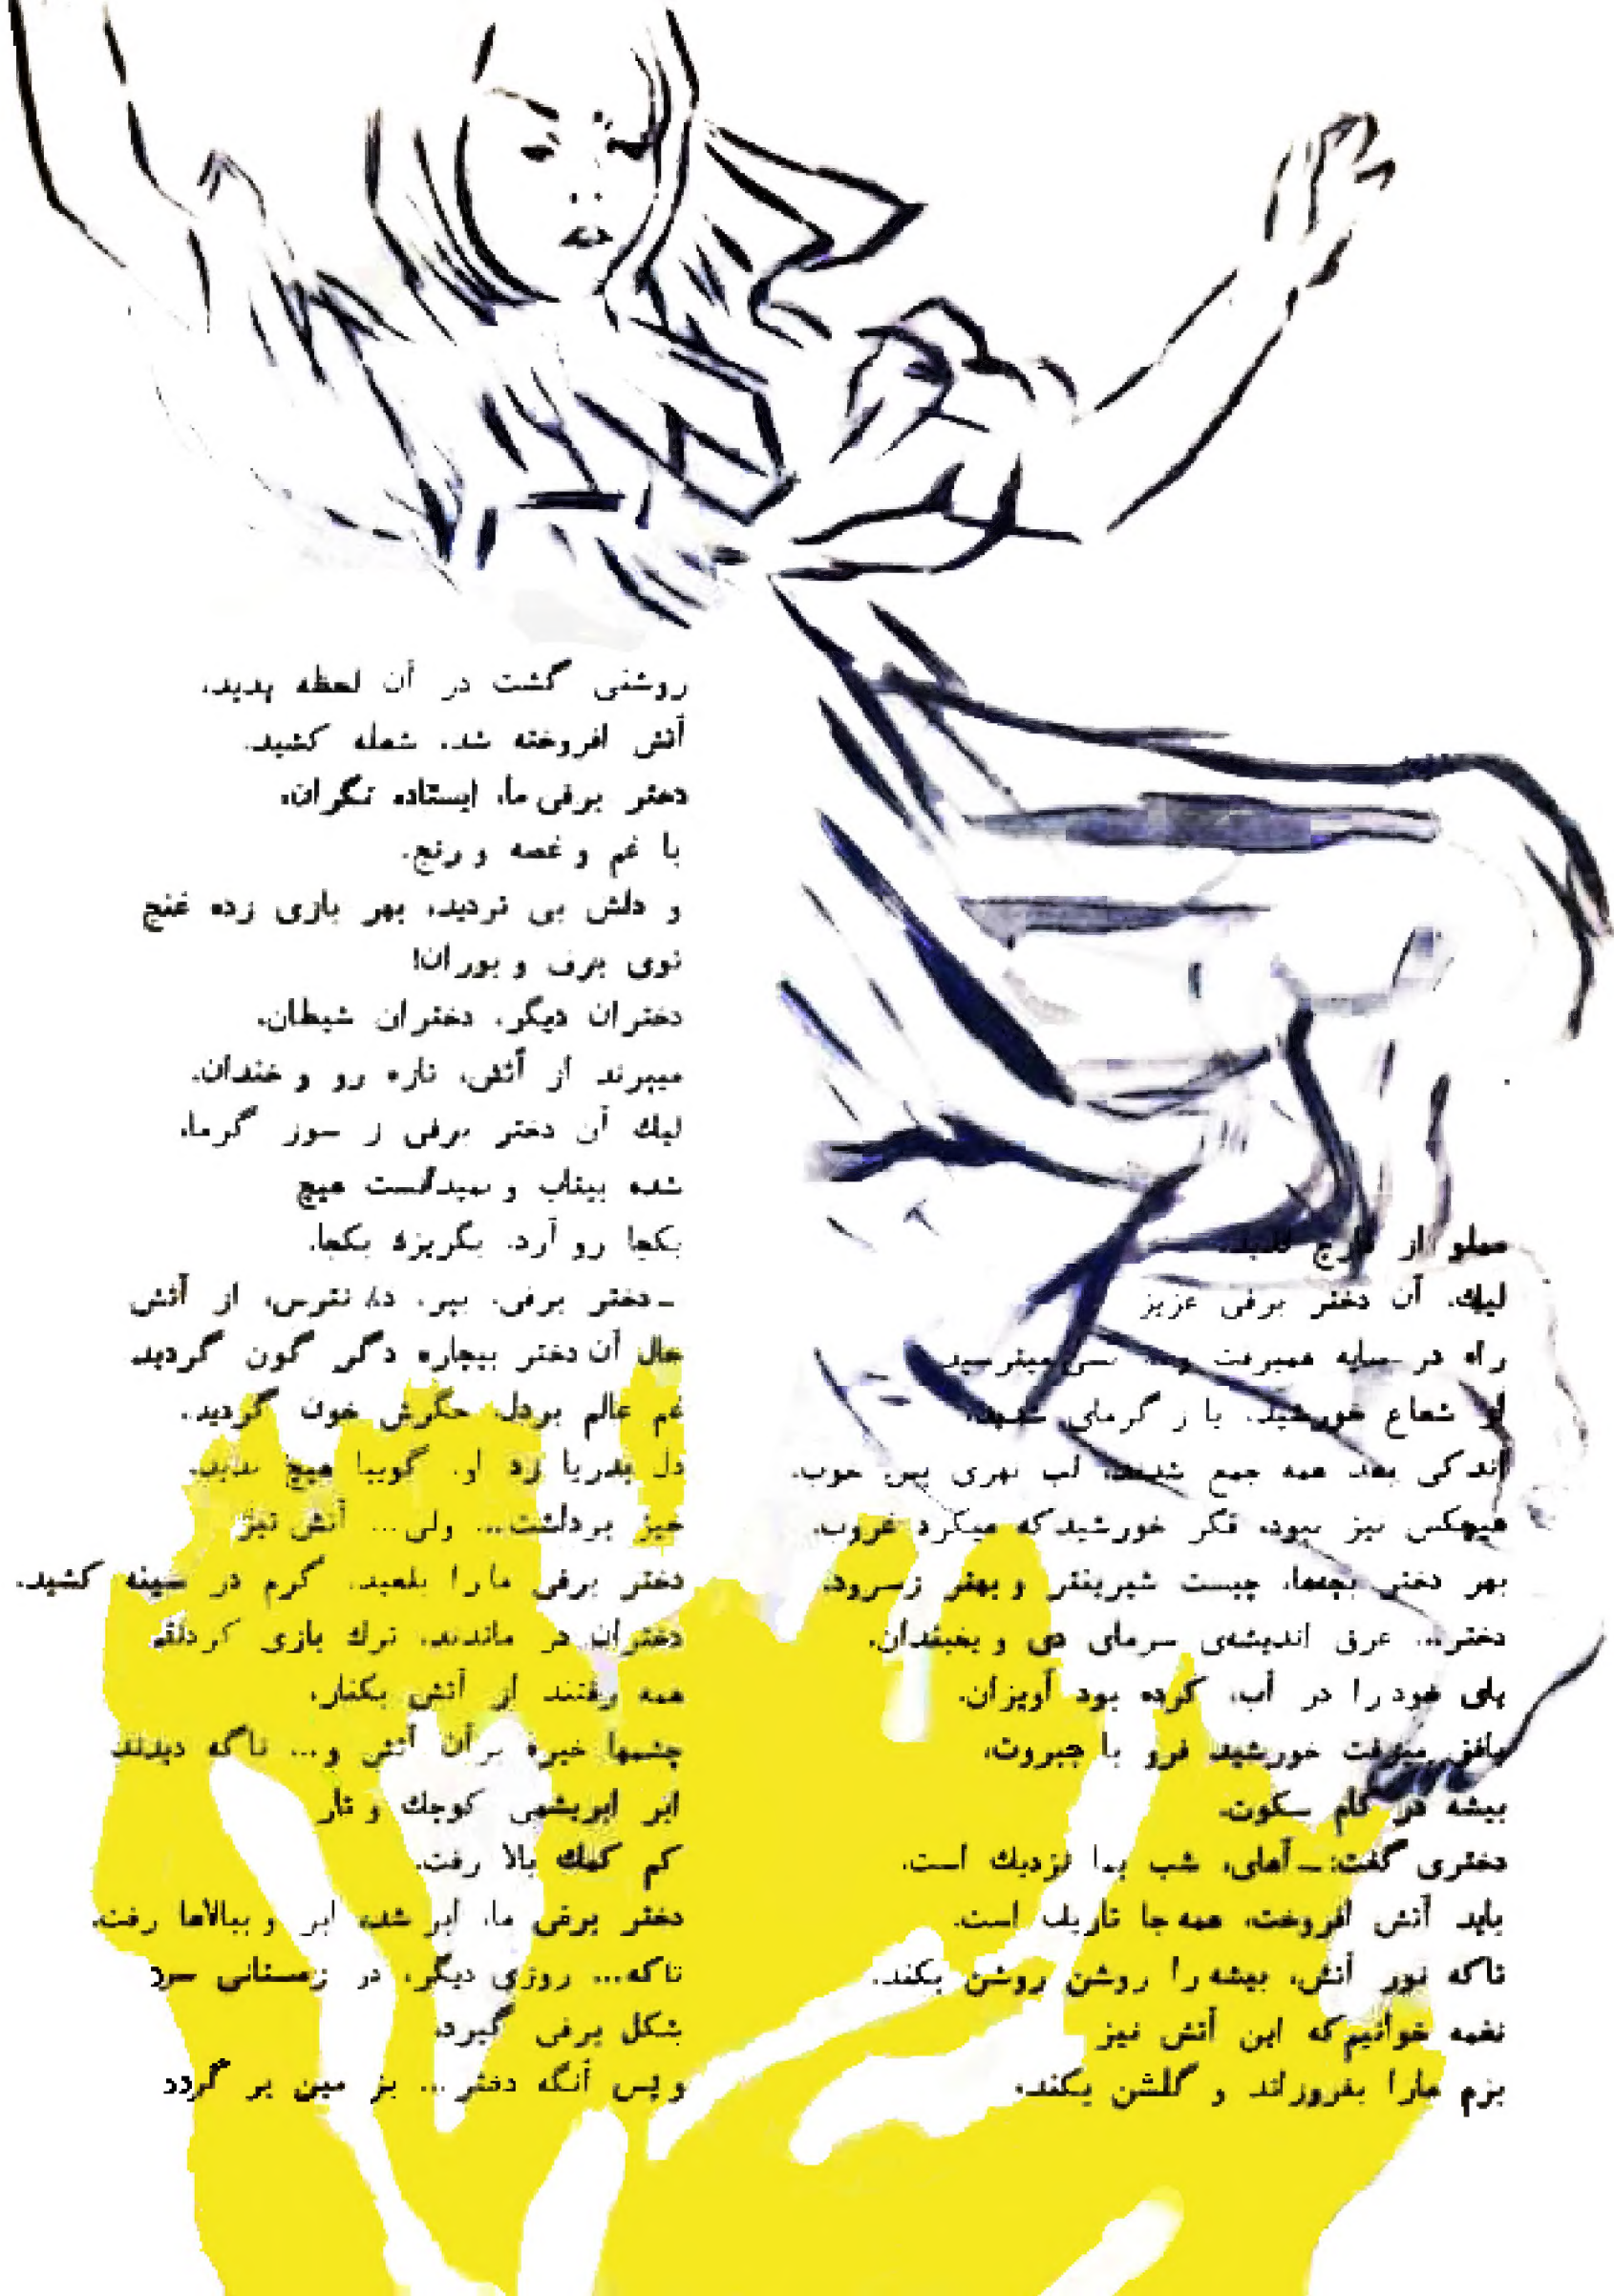 مملو از قارچ
لیك، آن دختر برفی عزیز
راه در سایه همیرفت و میترسید
از شعاع خورشید. یا ز گرمای
اندکی بعد همه جمع شدند، لب نهری پس چوب.
هیچکس نیز نبود، فکر خورشیدکه میکرد غروب.
بهر دختر بچه‌ها، چیست شیرینتر و بهتر زسرود،
دختر... غرق اندیشه‌ی سرمای دی و یخبندان.
پای خود را در آب، کرده بود آویزان.
بافق میرفت خورشید فرو با جبروت،
بیشه در کام سکوت.
دختری گفت: ــ آهای، شب بما نزدیك است.
باید آتش افروخت، همه جا تاریك است.
تاکه نور آتش، بیشه را روشن روشن بکند.
نغمه خوانیم که این آتش نیز
بزم مارا بفروزاند و گلشن بکند.
روشنی گشت در آن لحظه پدید،
آتش افروخته شد، شعله کشید.
دختر برفی ما، ایستاده نگران،
با غم و غصه و رنج.
و دلش بی تردید، بهر بازی زده غنج
توی برف و بوران!
دختران دیگر، دختران شیطان،
میپرند از آتش، تازه رو و خندان.
لیك آن دختر برفی ز سوز گرما،
شده بیتاب و نمیدانست هیچ
بکجا رو آرد. بگریزد بکجا.
ــ دختر برفی، بپر، دِ نترس، از آتش
حال آن دختر بیچاره دگر گون گردید
غم عالم بردل، جگرش خون گردید.
دل بدریا زد او. گوییا هیچ ندید.
خیز برداشت... ولی... آتش تیز
دختر برفی ما را بلعید. گرم در سینه کشید.
دختران در ماندند، ترك بازی کردند
همه رفتند از آتش بکنار.
چشمها خیره بر آن آتش و... ناگه دیدند
ابر ابریشمی کوچك و تار
کم کمك بالا رفت.
دختر برفی ما، ابر شد، ابر و ببالاها رفت.
تاکه... روزی دیگر، در زمستانی سرد
شکل برفی گیرد،
و پس آنگه دختر... بز مین بر گردد